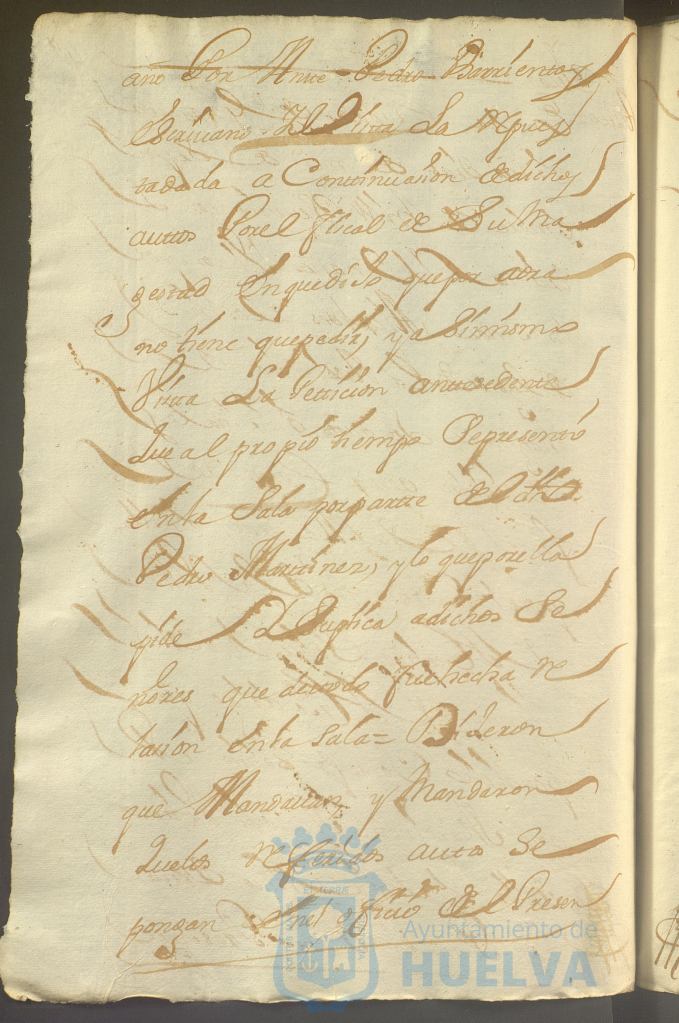 año Por Ante Pedro Barrientos
Escrivano Y Vista La Respues
ta dada a Continuasion de dichos
autos Por el fiscal de Su Ma
gestad En que dijo que por aora
no tiene que pedir, y a Simismo
Vista La Petticion antesedente
que al propio tiempo Representó
en la Sala por partte de
Pedro Martinez, y lo que por ella
pide Y Suplica a dichos Se
ñores que de todo fue hecha Re
lasion en la Sala = Dixeron
que Mandauan, y Mandaron
que los referidos autos Se
pongan En el ofisio de el Presen
Ayuntamiento de
HUELVA